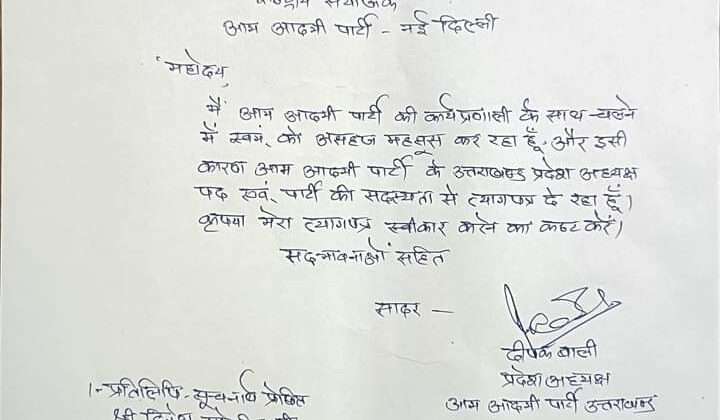 केन्द्रीय संयोजक
आम आदमी पार्टी - नई दिल्ली
महोदय,
मैं आम आदमी पार्टी की कार्यप्रणाली के साथ-चलने
में स्वयं को असहज महसूस कर रहा हूँ, और इसी
कारण आम आदमी पार्टी के उत्तराखण्ड प्रदेश अध्यक्ष
पद एवं पार्टी की सदस्यता से त्यागपत्र दे रहा हूँ।
कृपया मेरा त्यागपत्र स्वीकार करने का कष्ट करें।
सद्भावनाओं सहित
सादर -
दीपक बाली
प्रदेश अध्यक्ष
आम आदमी पार्टी उत्तराखण्ड
1- प्रतिलिपि- सूचनार्थ प्रेषित
श्री